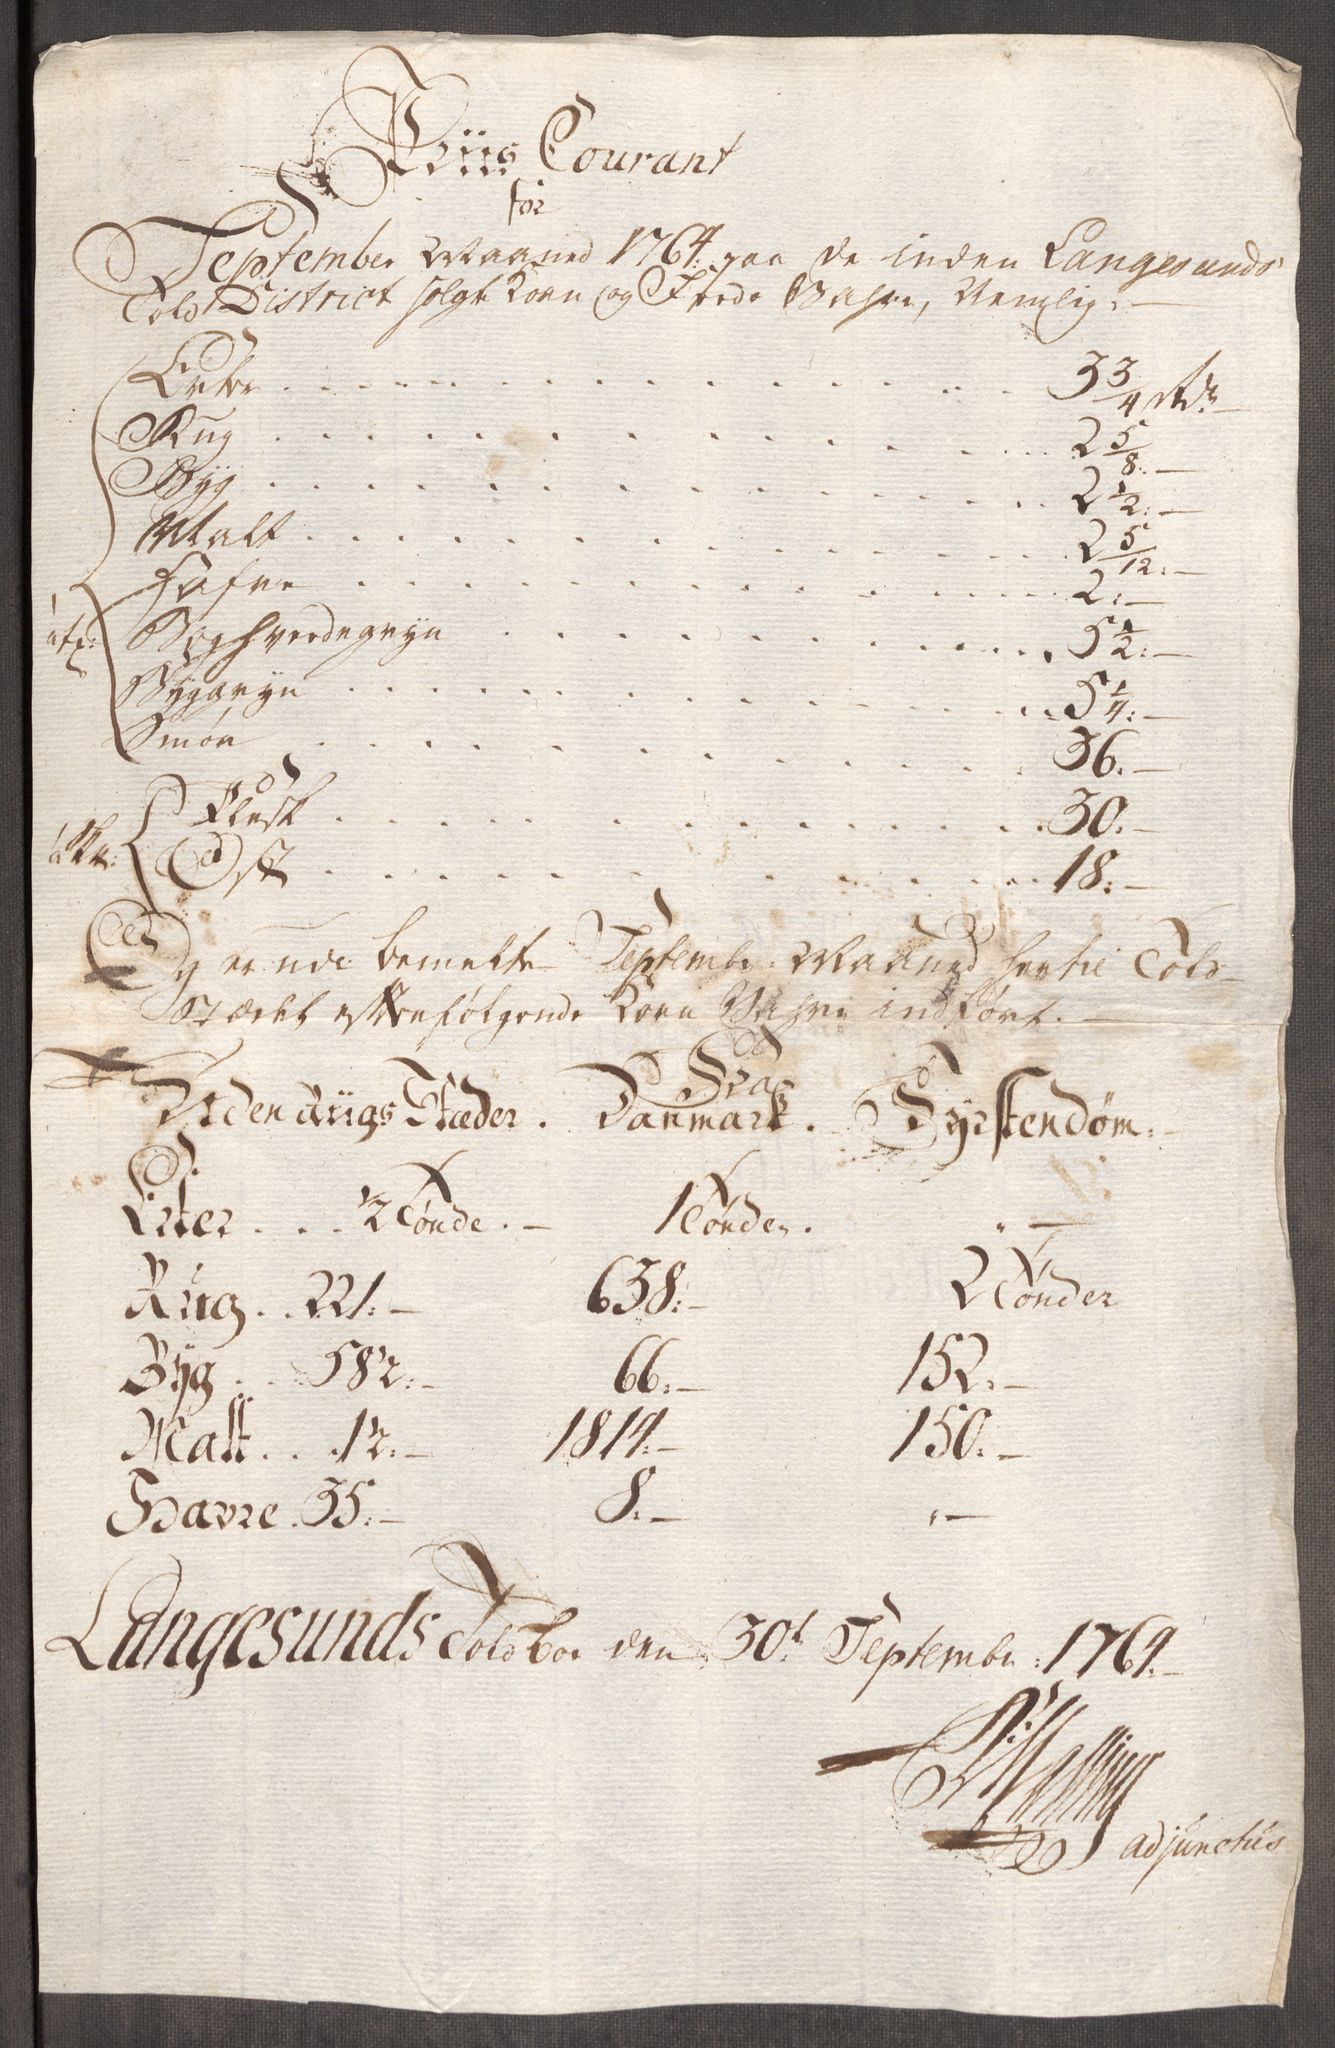 Priis Courant
for
September Maaned 1764. paa de inden Langesunds
Told District solgte Korn og Feede Vahre, Nemlig:
Erter . . . 3 3/4 Rdr.
Rug . . . 2 5/8:
Byg . . . 2 1/2:
Malt . . . 2 5/12:
Hafre . . . 2:
Boghvedegryn . . . 5 1/2:
Byggryn . . . 5 1/4:
Smør . . . 36:
Flesk . . . 30:
Ost . . . 18:
Og er udi bemelte Septembr. Maaned hertil Told
Stædet efterfølgende Korn Vahre indført.
Fra
Uden Riigs Stæder. Danmark. Fyrstendøm:
Erter . . . 1/2 Tønde. 1 Tønder. "
Rug . . 221: 638: 2 Tønder
Byg . . 582: 66: 152:
Malt . . . 12: 1814: 150:
Havre . 35: 8: "
Langesunds Toldboe den 30t. Septembr: 1764.
adjunctus